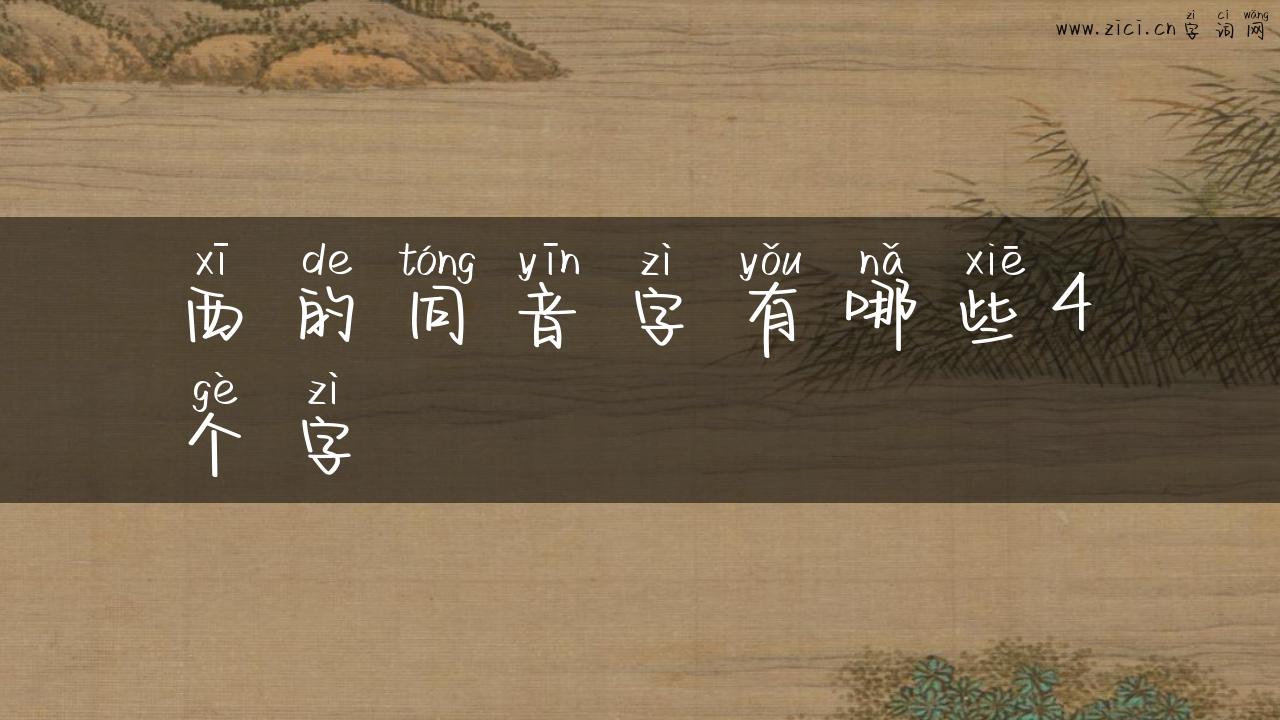 www.zici.cn zì cí wǎng
字词网
xī de tóng yīn zì yǒu nǎ xiē
西的同音字有哪些4
gè zì
个字